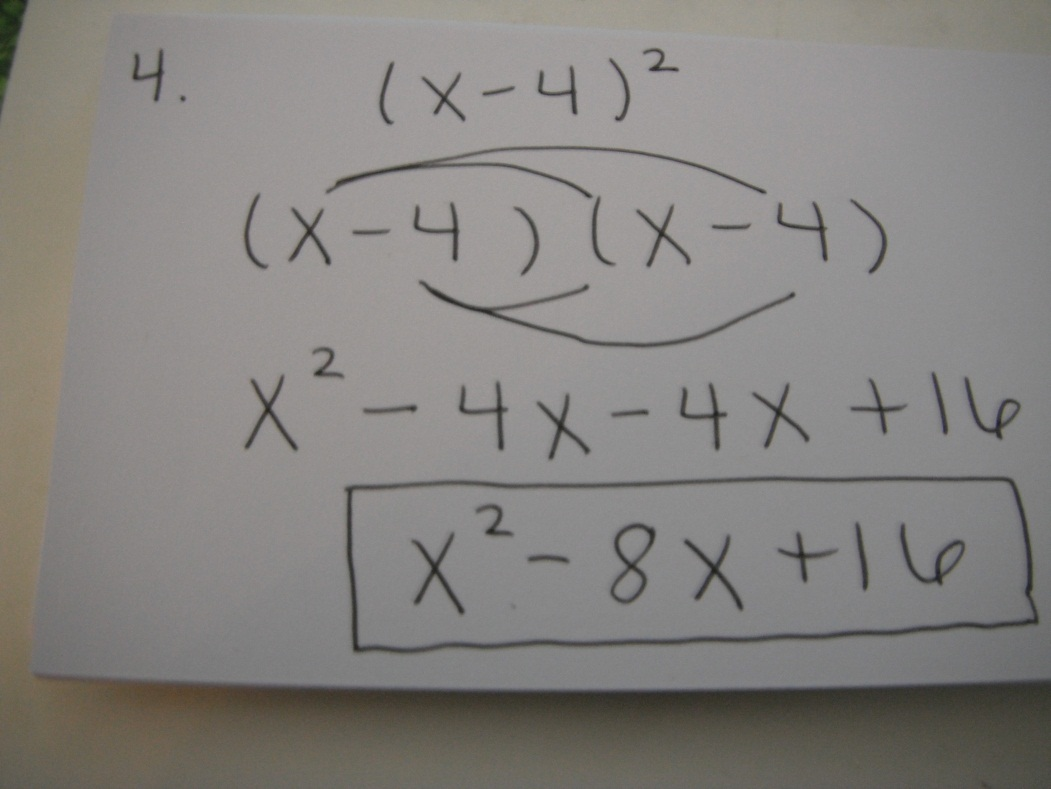 4. (x-4)²
(x-4)(x-4)
x² - 4x - 4x + 16
x² - 8x + 16